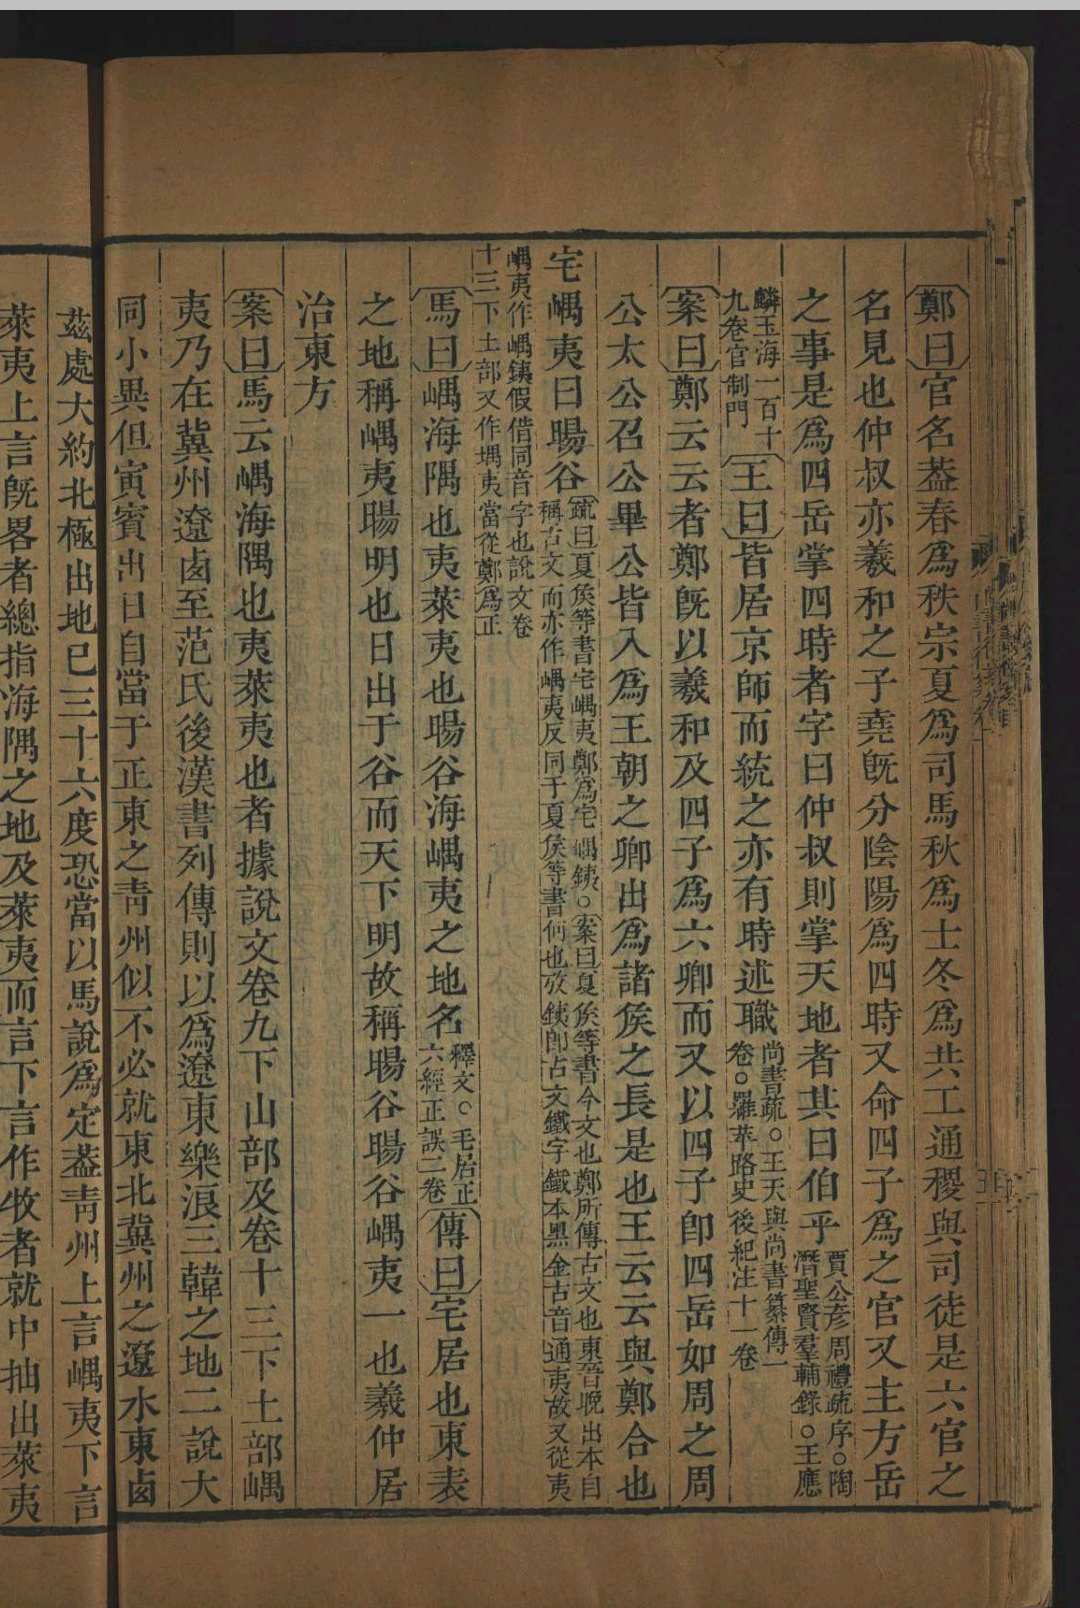 鄭曰官名葢春爲秩宗夏爲司馬秋爲士冬爲共工通稷與司徒是六官之
名見也仲叔亦羲和之子堯旣分陰陽爲四時又命四子爲之官又主方岳
之事是爲四岳掌四時者字曰仲叔則掌天地者其曰伯乎賈公彥周禮疏序○陶
潛聖賢羣輔錄○王應
麟玉海一百十
九卷官制門王曰皆居京師而統之亦有時述職尚書疏○王天與尚書纂傳一
卷○羅苹路史後紀注十一卷
案曰鄭云云者鄭旣以羲和及四子爲六卿而又以四子卽四岳如周之周
公太公召公畢公皆入爲王朝之卿出爲諸侯之長是也王云云與鄭合也
宅嵎夷曰暘谷疏曰夏侯等書宅嵎夷鄭爲宅嵎銕○案曰夏侯等書今文也鄭所傳古文也東晉晚出本自
稱古文而亦作嵎夷反同于夏侯等書何也攷銕卽古文鐵字鐵本黑金古音通夷故又從夷
嵎夷作嵎銕假借同音字也說文卷
十三下土部又作堣夷當從鄭爲正
馬曰嵎海隅也夷萊夷也暘谷海嵎夷之地名釋文○毛居正
六經正誤二卷傳曰宅居也東表
之地稱嵎夷暘明也日出于谷而天下明故稱暘谷暘谷嵎夷一也羲仲居
治東方
案曰馬云嵎海隅也夷萊夷也者據說文卷九下山部及卷十三下土部嵎
夷乃在冀州遼卤至范氏後漢書列傳則以爲遼東樂浪三韓之地二說大
同小異但寅賓出日自當于正東之靑州似不必就東北冀州之遼水東卤
茲處大約北極出地已三十六度恐當以馬說爲定葢靑州上言嵎夷下言
萊夷上言旣畧者總指海隅之地及萊夷而言下言作牧者就中抽出萊夷